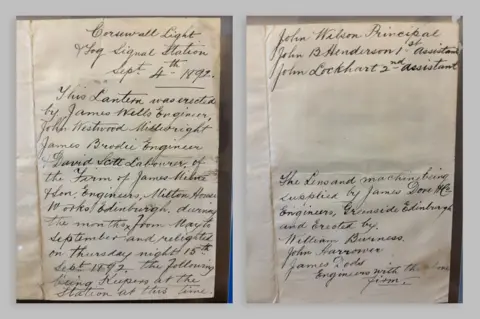 Corsewall Light
& Fog Signal Station
Sept. 4th 1892.
This Lantern was erected
by James Wells Engineer,
John Westwood Millwright
James Brodie Engineer
David Scott Labourer, of
the Firm of James Milne
& Son, Engineers, Milton House
Works, Edinburgh, during
the months from May to
September and relighted
on Thursday night 15th
Sept 1892. The following
being Keepers at the
Station at this time.
John Wilson Principal
John B Henderson 1st assistant
John Lockhart 2nd assistant
The Lens and machine being
supplied by James Dove & Co
Engineers, Greenside Edinburgh
and Erected by,
William Burness.
John Harrower
James Dods
Engineers with the
firm.